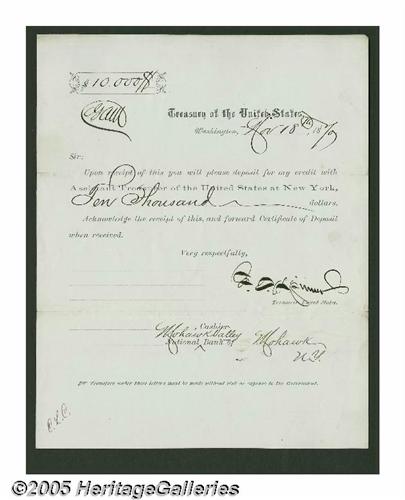 $ 10.000 $
Treasury of the United States,
Washington, Nov 18th 187
Sir:
Upon receipt of this you will please deposit for my credit with
Assistant Treasurer of the United States at New York,
Ten Thousand dollars.
Acknowledge the receipt of this, and forward Certificate of Deposit
when received.
Very respectfully,
Treasurer United States.
Cashier
Mohawk Valley
National Bank of Mohawk
N.Y.
Transfers under these letters must be made without risk or expense to the Government.
©2005 HeritageGalleries